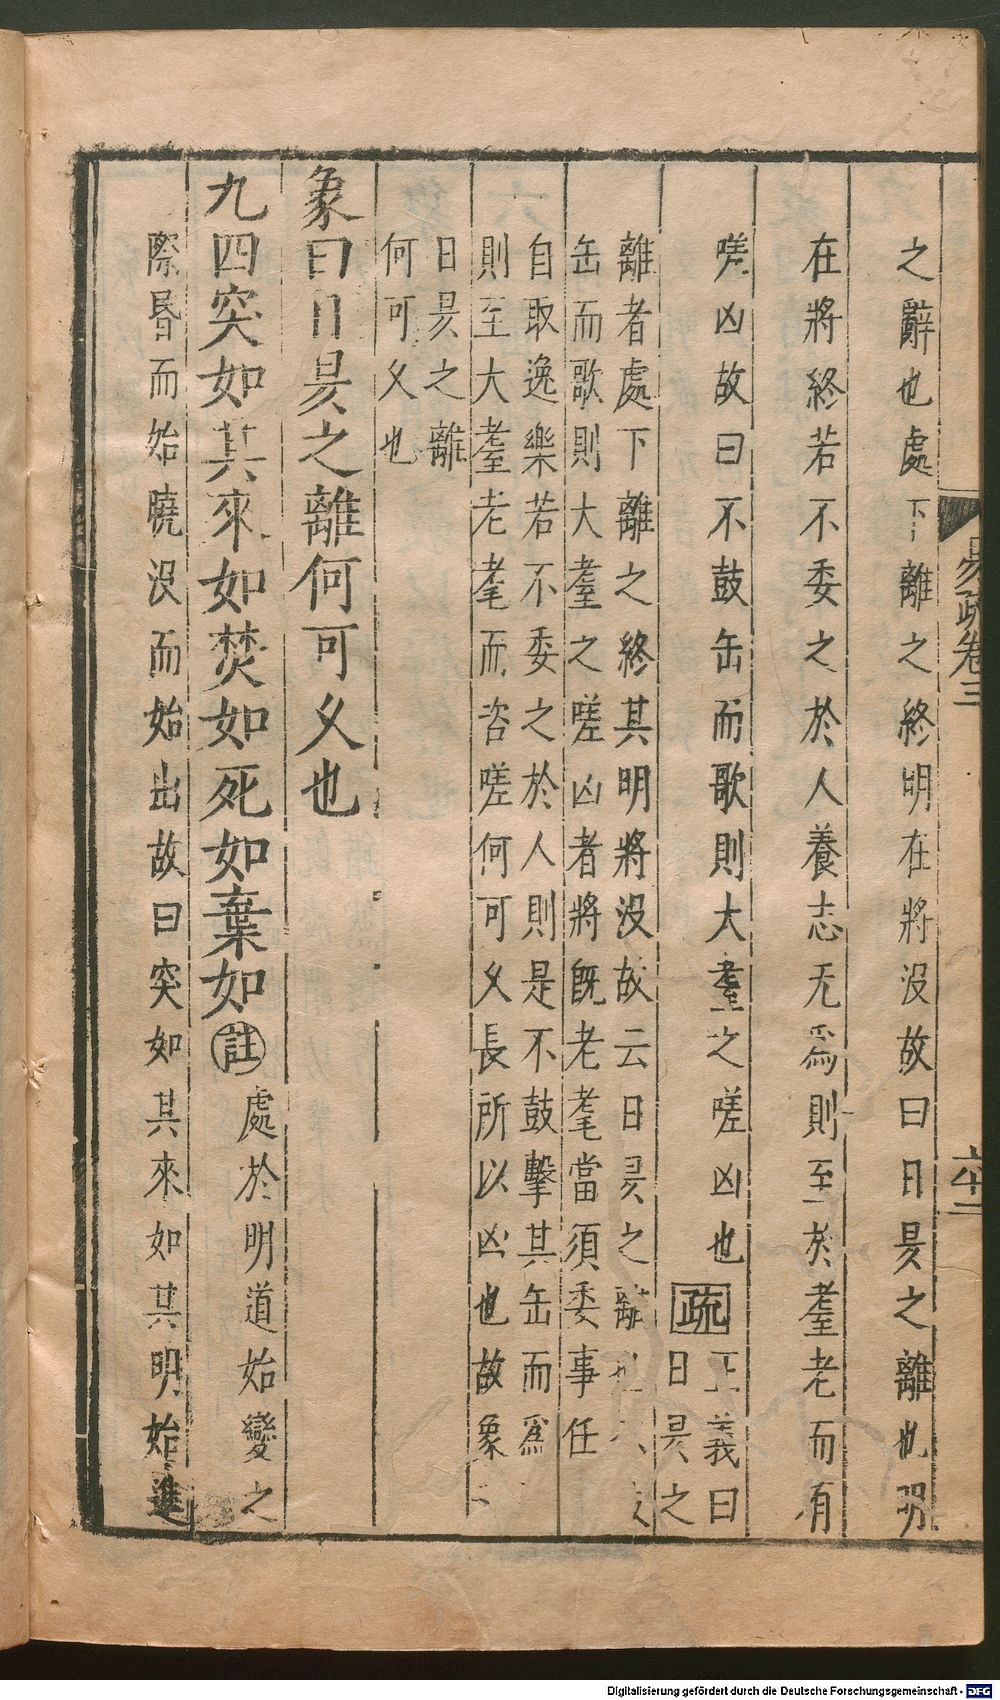 之辭也處下離之終明在將没故曰日昃之離也明
在將終若不委之於人養志无為則至於耋老而有
嗟凶故曰不鼓缶而歌則大耋之嗟凶也疏
正義曰
日昃之
離者處下離之終其明將没故云日昃之離也
缶而歌則大耋之嗟凶者將旣老耄當須委事任
自取逸樂若不委之於人則是不鼓擊其缶而為
則至大耋老耄而咨嗟何可久長所以凶也故象
日昃之離
何可久也
象曰日昃之離何可久也
九四突如其來如焚如死如棄如註處於明道始變之
際昬而始曉没而始出故曰突如其來如其明始進
易疏卷三
六十二
Digitalisierung gefördert durch die Deutsche Forschungsgemeinschaft - DFG